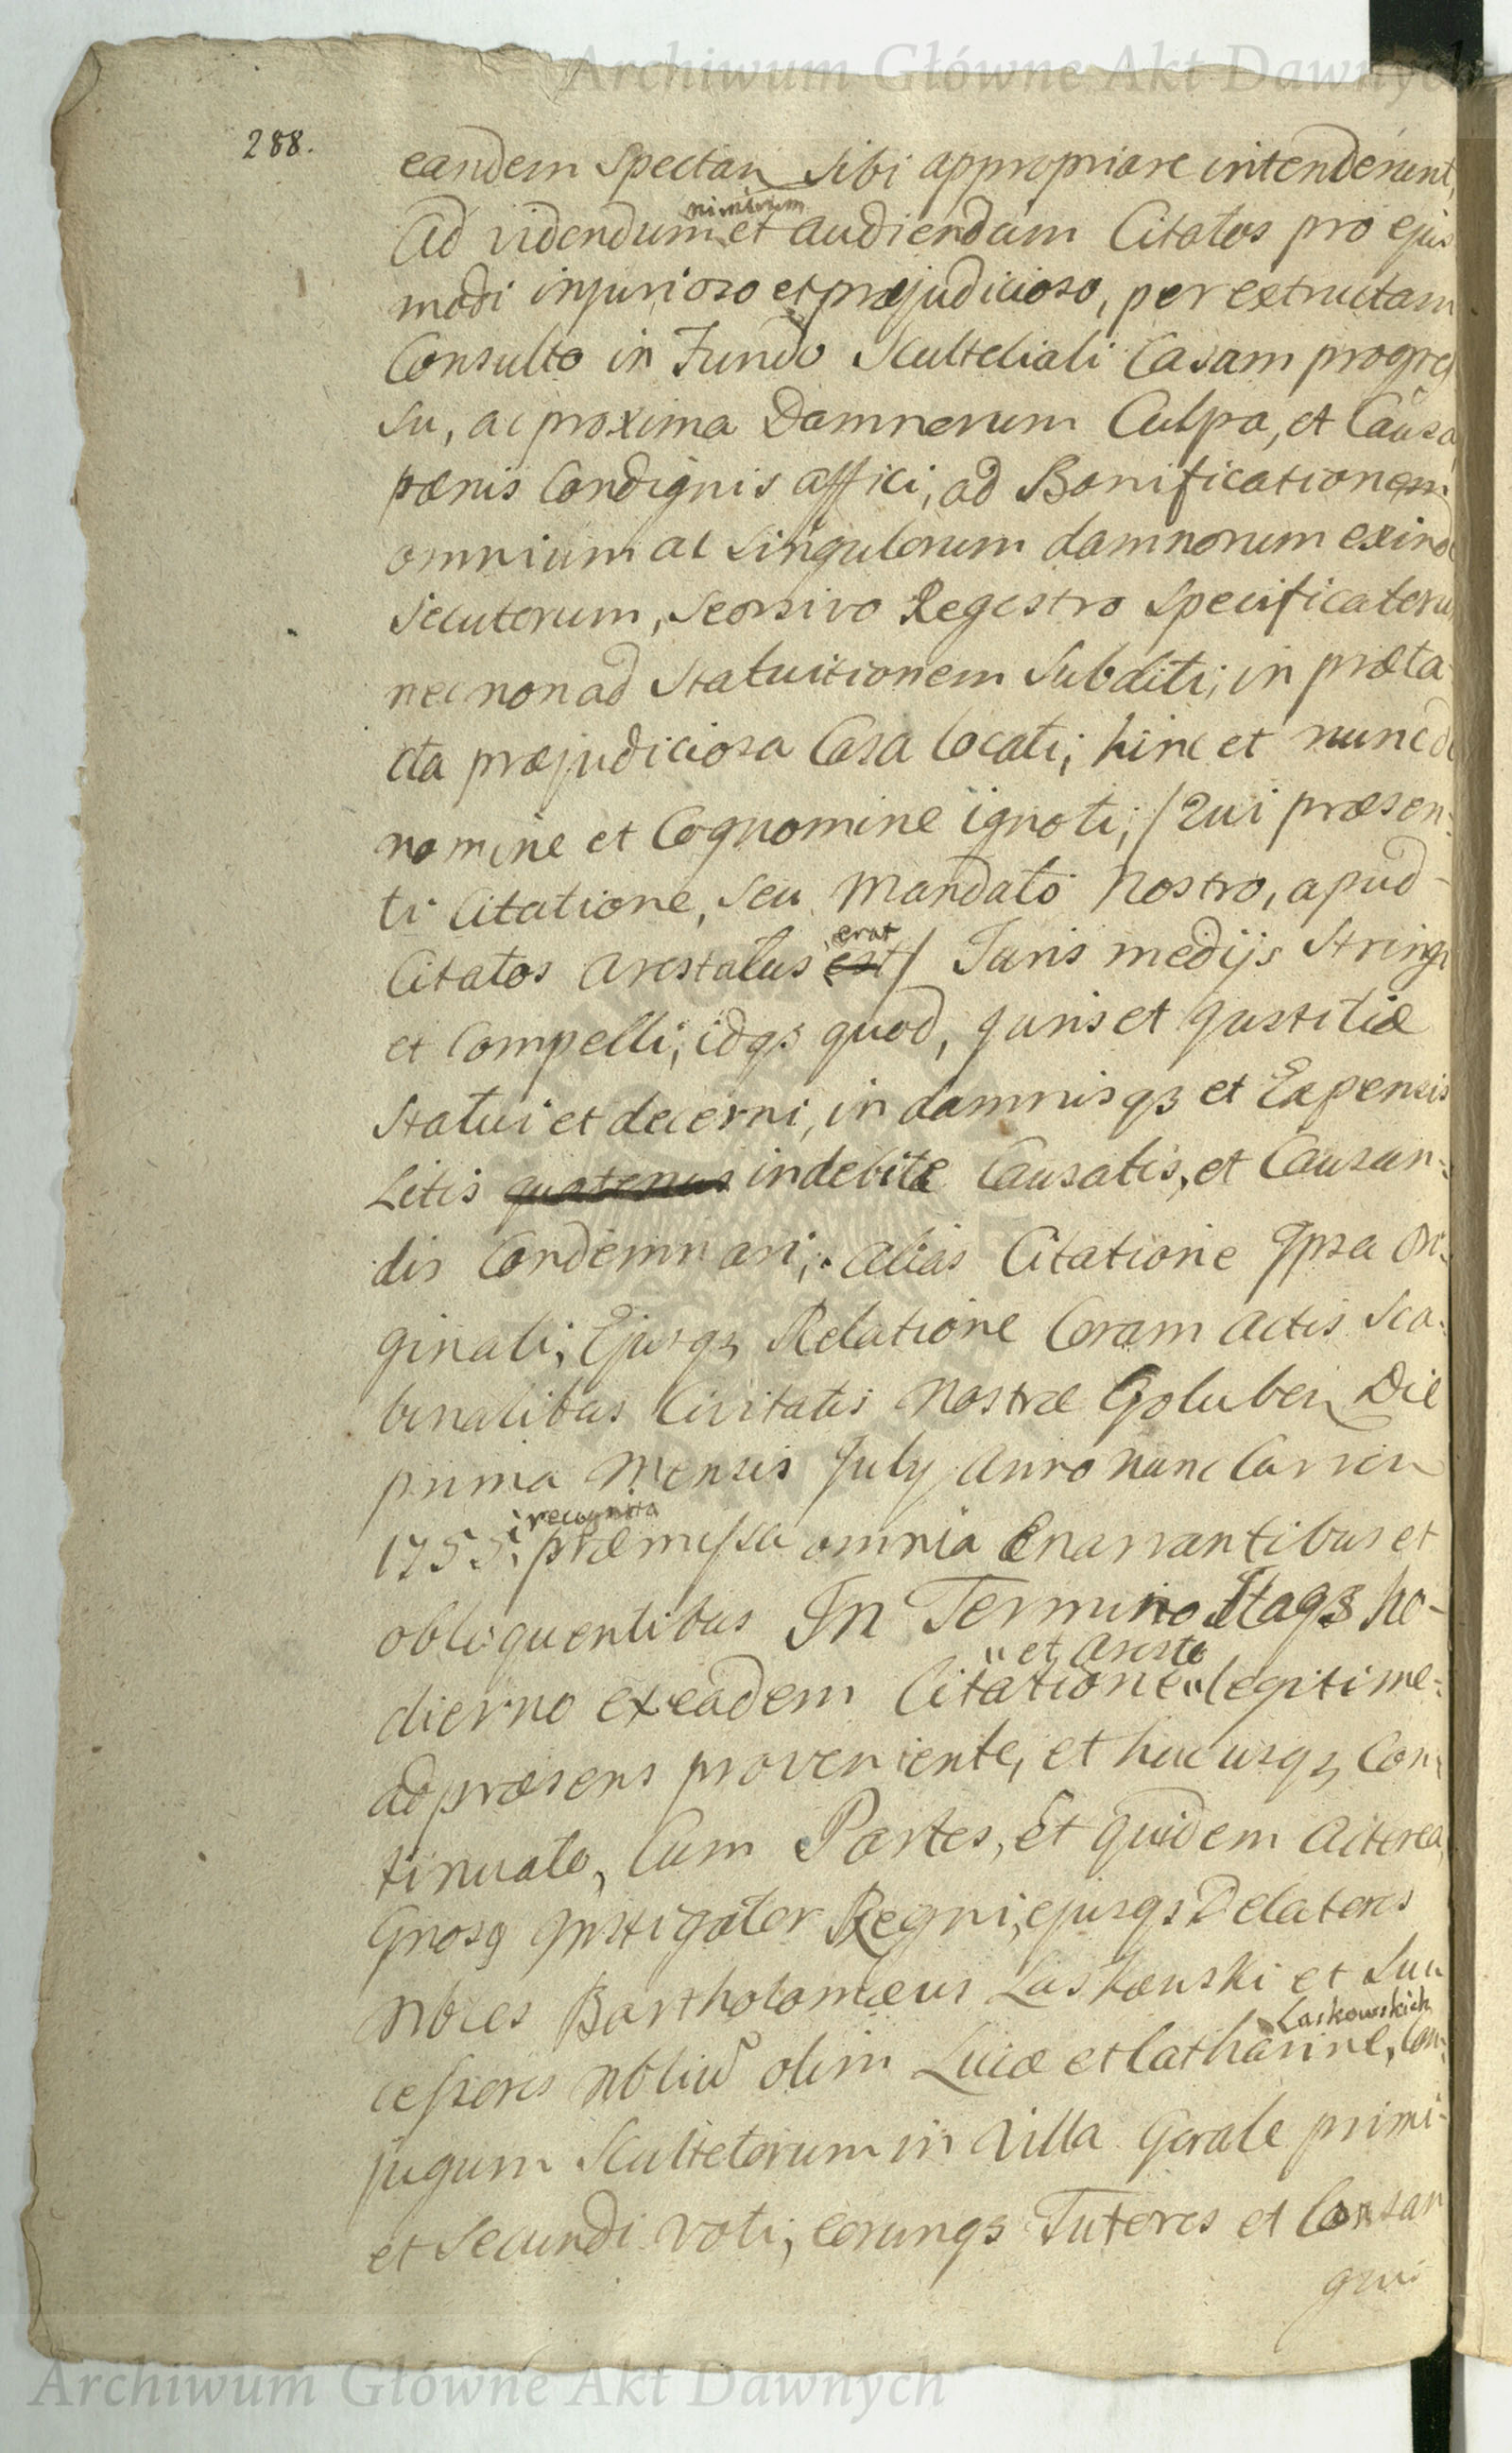 Archiwum Główne Akt Dawnych
288.
eandem Spectan Sibi appropriare intenderunt,
Ad videndum nimirum et audiendum Citatos pro ejus
modi injurioso et præjudicioso, per extructam
Consulto in Fundo Scultetiali Casam progres
su, ac proxima Damnorum Culpa, et Causa,
pænis Condignis affici, ad Bonificationem
omnium ac Singulorum damnorum exinde
Secutorum, Seorsivo Regestro Specificatoru
nec non ad Statuitionem Subditi, in præta-
cta præjudiciosa Casa locati; hinc et nunc de
nomine et Cognomine ignoti; /Qui præsen:
ti Citatione, Seu Mandato Nostro, apud-
Citatos arestatus est erat/ Juris medijs Stringi
et Compelli, idqꝫ quod, Juris et Justitiæ
Statui et decerni, in damnisqꝫ et Expensis
Litis quatenus indebite Causatis, et Causan:
dis Condemnari; alias Citatione Ipsa Ori:
ginali, Ejusqꝫ Relatione Coram actis Sca:
binalibus Civitatis Nostræ Goluben Die
prima Mensis July Anno nunc Curren
1755, recognita præmissa omnia Enarrantibus et
obloquentibus In Termino Itaqꝫ ho-
dierno ex eadem Citatione et aresto legitime:
ad præsens proveniente, et huc usqꝫ Con:
tinuato, Cum Partes, Et quidem Actorea,
Gnosꝫ Instigator Regni, ejusqꝫ Delatores
Nbles Bartholomæus Laskowski et Suc
cessores Nbliu olim Lucæ et Catharinæ Laskowskich, Con:
jugum Scultetorum in Villa Gorale primi-
et Secundi voti, Eorumqꝫ Tutores et Consan
gui
Archiwum Główne Akt Dawnych